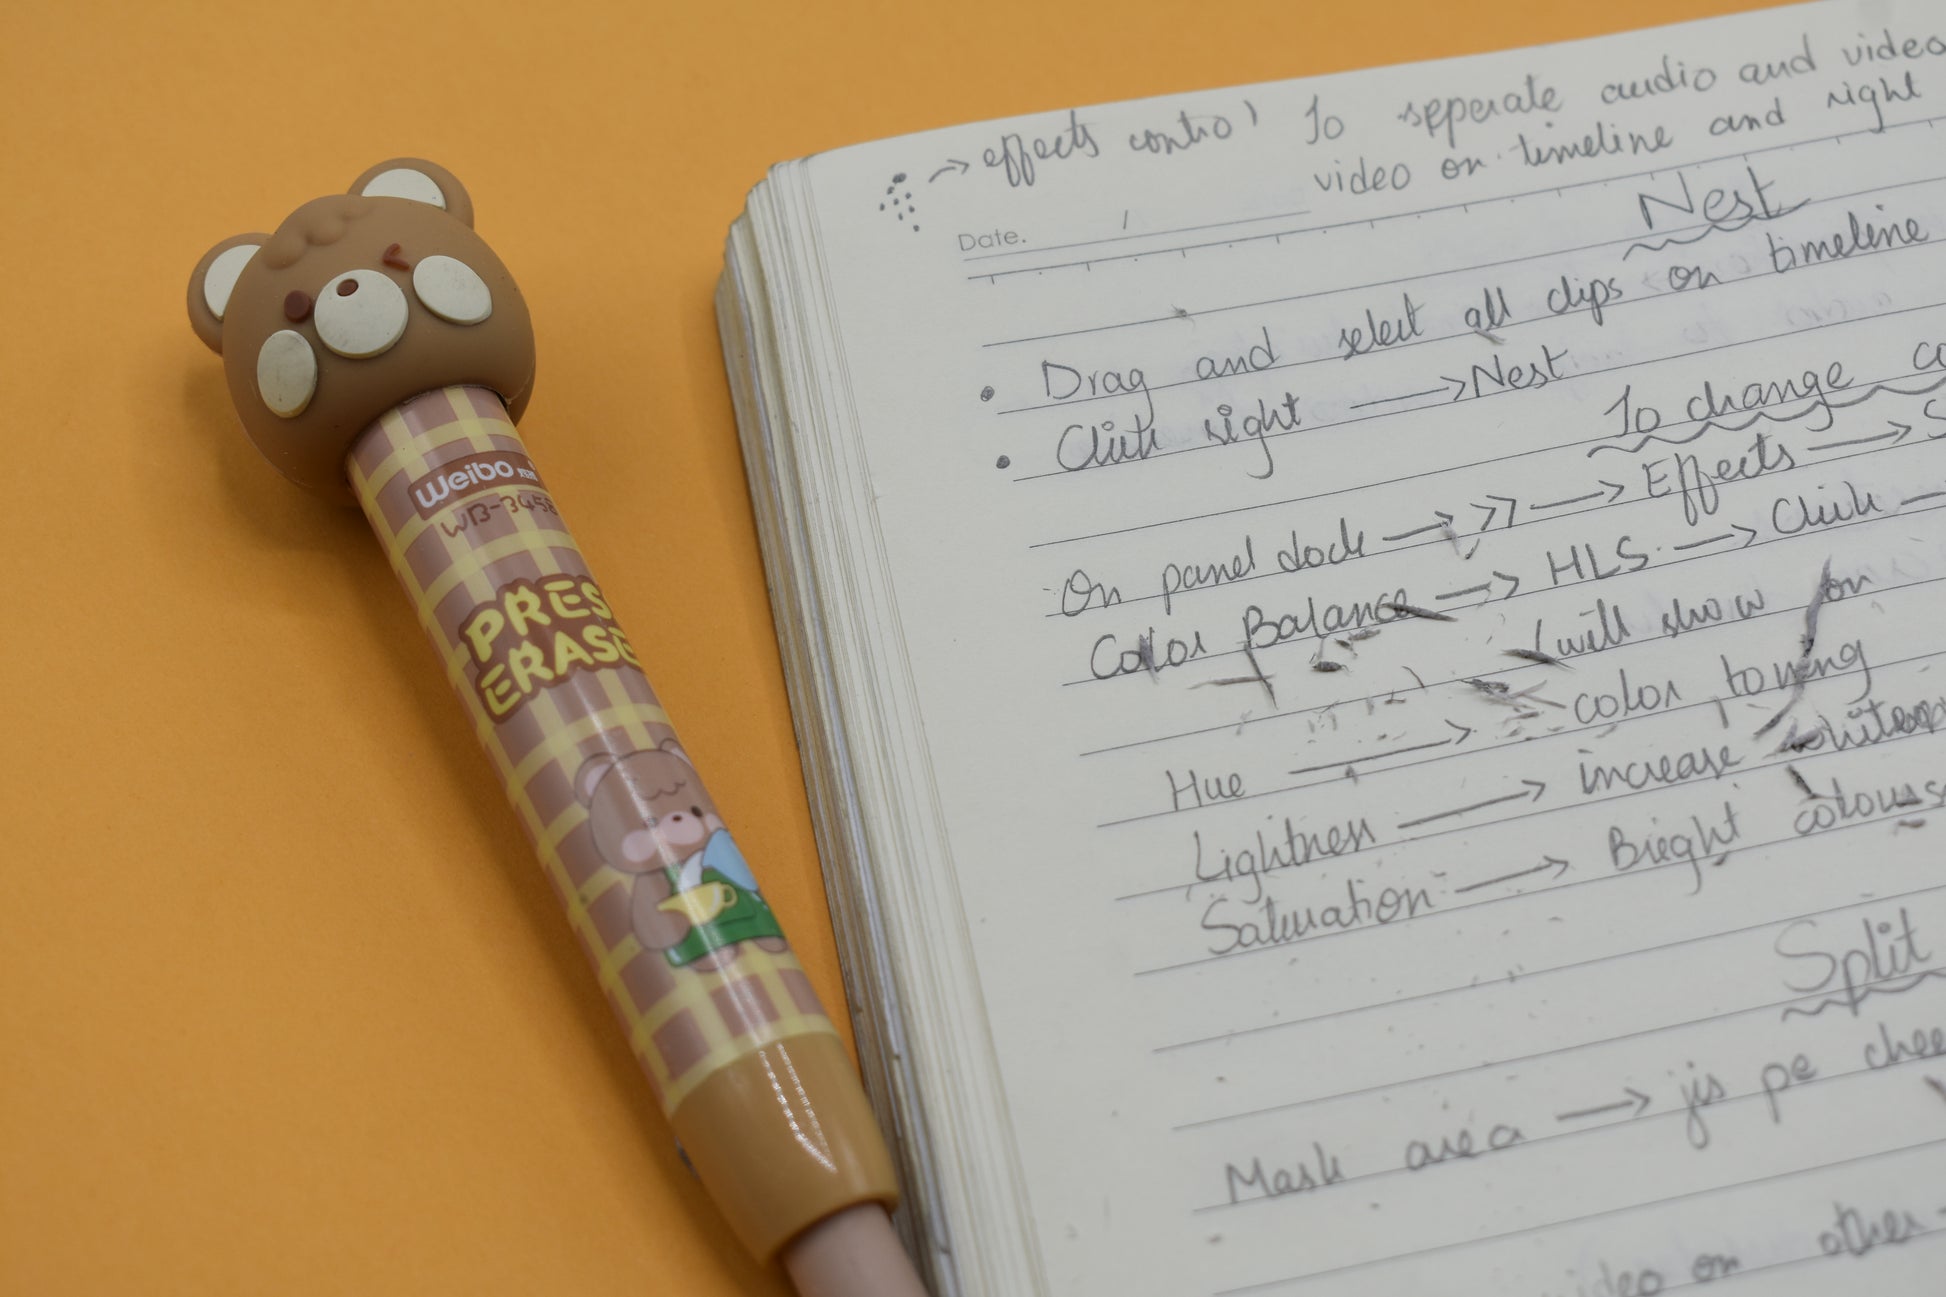 weibo
WB-3458
PRESS
ERASE
→ effects control To spperate audio and video
video on timeline and right
Date. /
Nest
• Drag and select all clips on timeline
• Click right → Nest
To change
On panel dock → >> → Effects →
Color Balance → HLS → Click →
(will show on
Hue → color toning
Lightness → increase
Saturation → Bright colours
Split
Mask area → jis pe
video on other